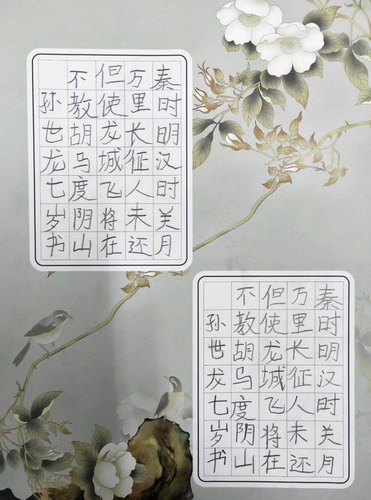 秦时明汉时关月
万里长征人未还
但使龙城飞将在
不教胡马度阴山
孙世龙七岁书
秦时明汉时关月
万里长征人未还
但使龙城飞将在
不教胡马度阴山
孙世龙七岁书